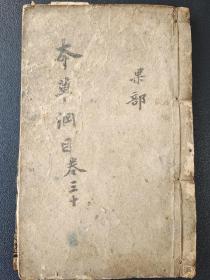 果部
本草綱目卷三十